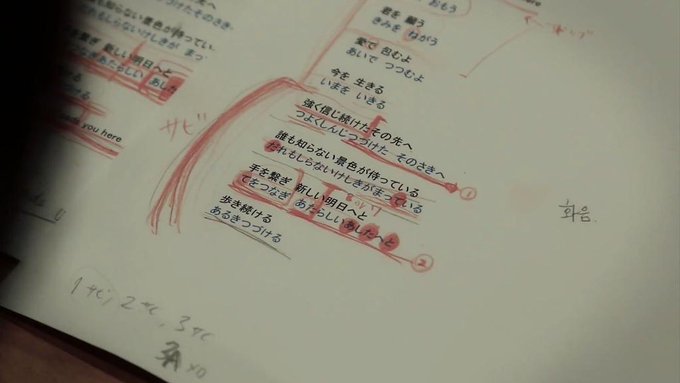 たその先へ
つづけたそのさき
も知らない景色が待ってい
もしらないけしきが まっ
を繋ぎ 新しい明日へと
をつなぎ あたらしい あした
つづける
you here
サビ
おもう
君を 願う
きみを ねがう
愛で 包むよ
あいで つつむよ
今を 生きる
いまを いきる
強く信じ続けたその先へ
つよくしんじつづけた そのさきへ
①
誰も知らない景色が待っている
だれもしらないけしきがまっている
手を繋ぎ 新しい明日へと
てをつなぎ あたらしいあしたへと
②
歩き続ける
あるきつづける
화음